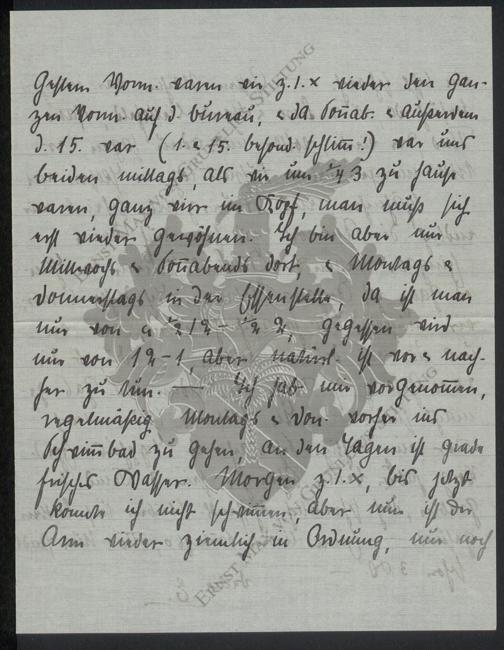 Gestern Vorm. waren wir z. 1. x wieder den gan-
zen Vorm. auf d. bureau, & da Sonnab. & außerdem
d. 15. war (1. & 15. besond. schlimm!) war uns
beiden mittags, als wir um ¼ 3 zu Hause
waren, ganz wirr im Kopf, man muß sich
erst wieder gewöhnen. Ich bin aber nur
Mittwochs & Sonnabends dort, & Montags &
Donnerstags in der Essenstelle, da ist man
nur von ½ 12 – ½ 2, gegessen wird
nur von 12-1, aber natürl. ist vor & nach-
her zu tun. — Ich hab mir vorgenommen,
regelmäßig Montags & Don. vorher ins
Schwimmbad zu gehen, an den Tagen ist grade
frisches Wasser. Morgen z. 1. x, bis jetzt
konnte ich nicht schwimmen, aber nun ist der
Arm wieder ziemlich in Ordnung, nur noch
ERNST MAX VON GRUNELIUS-STIFTUNG
ERNST MAX VON GRUNELIUS-STIFTUNG